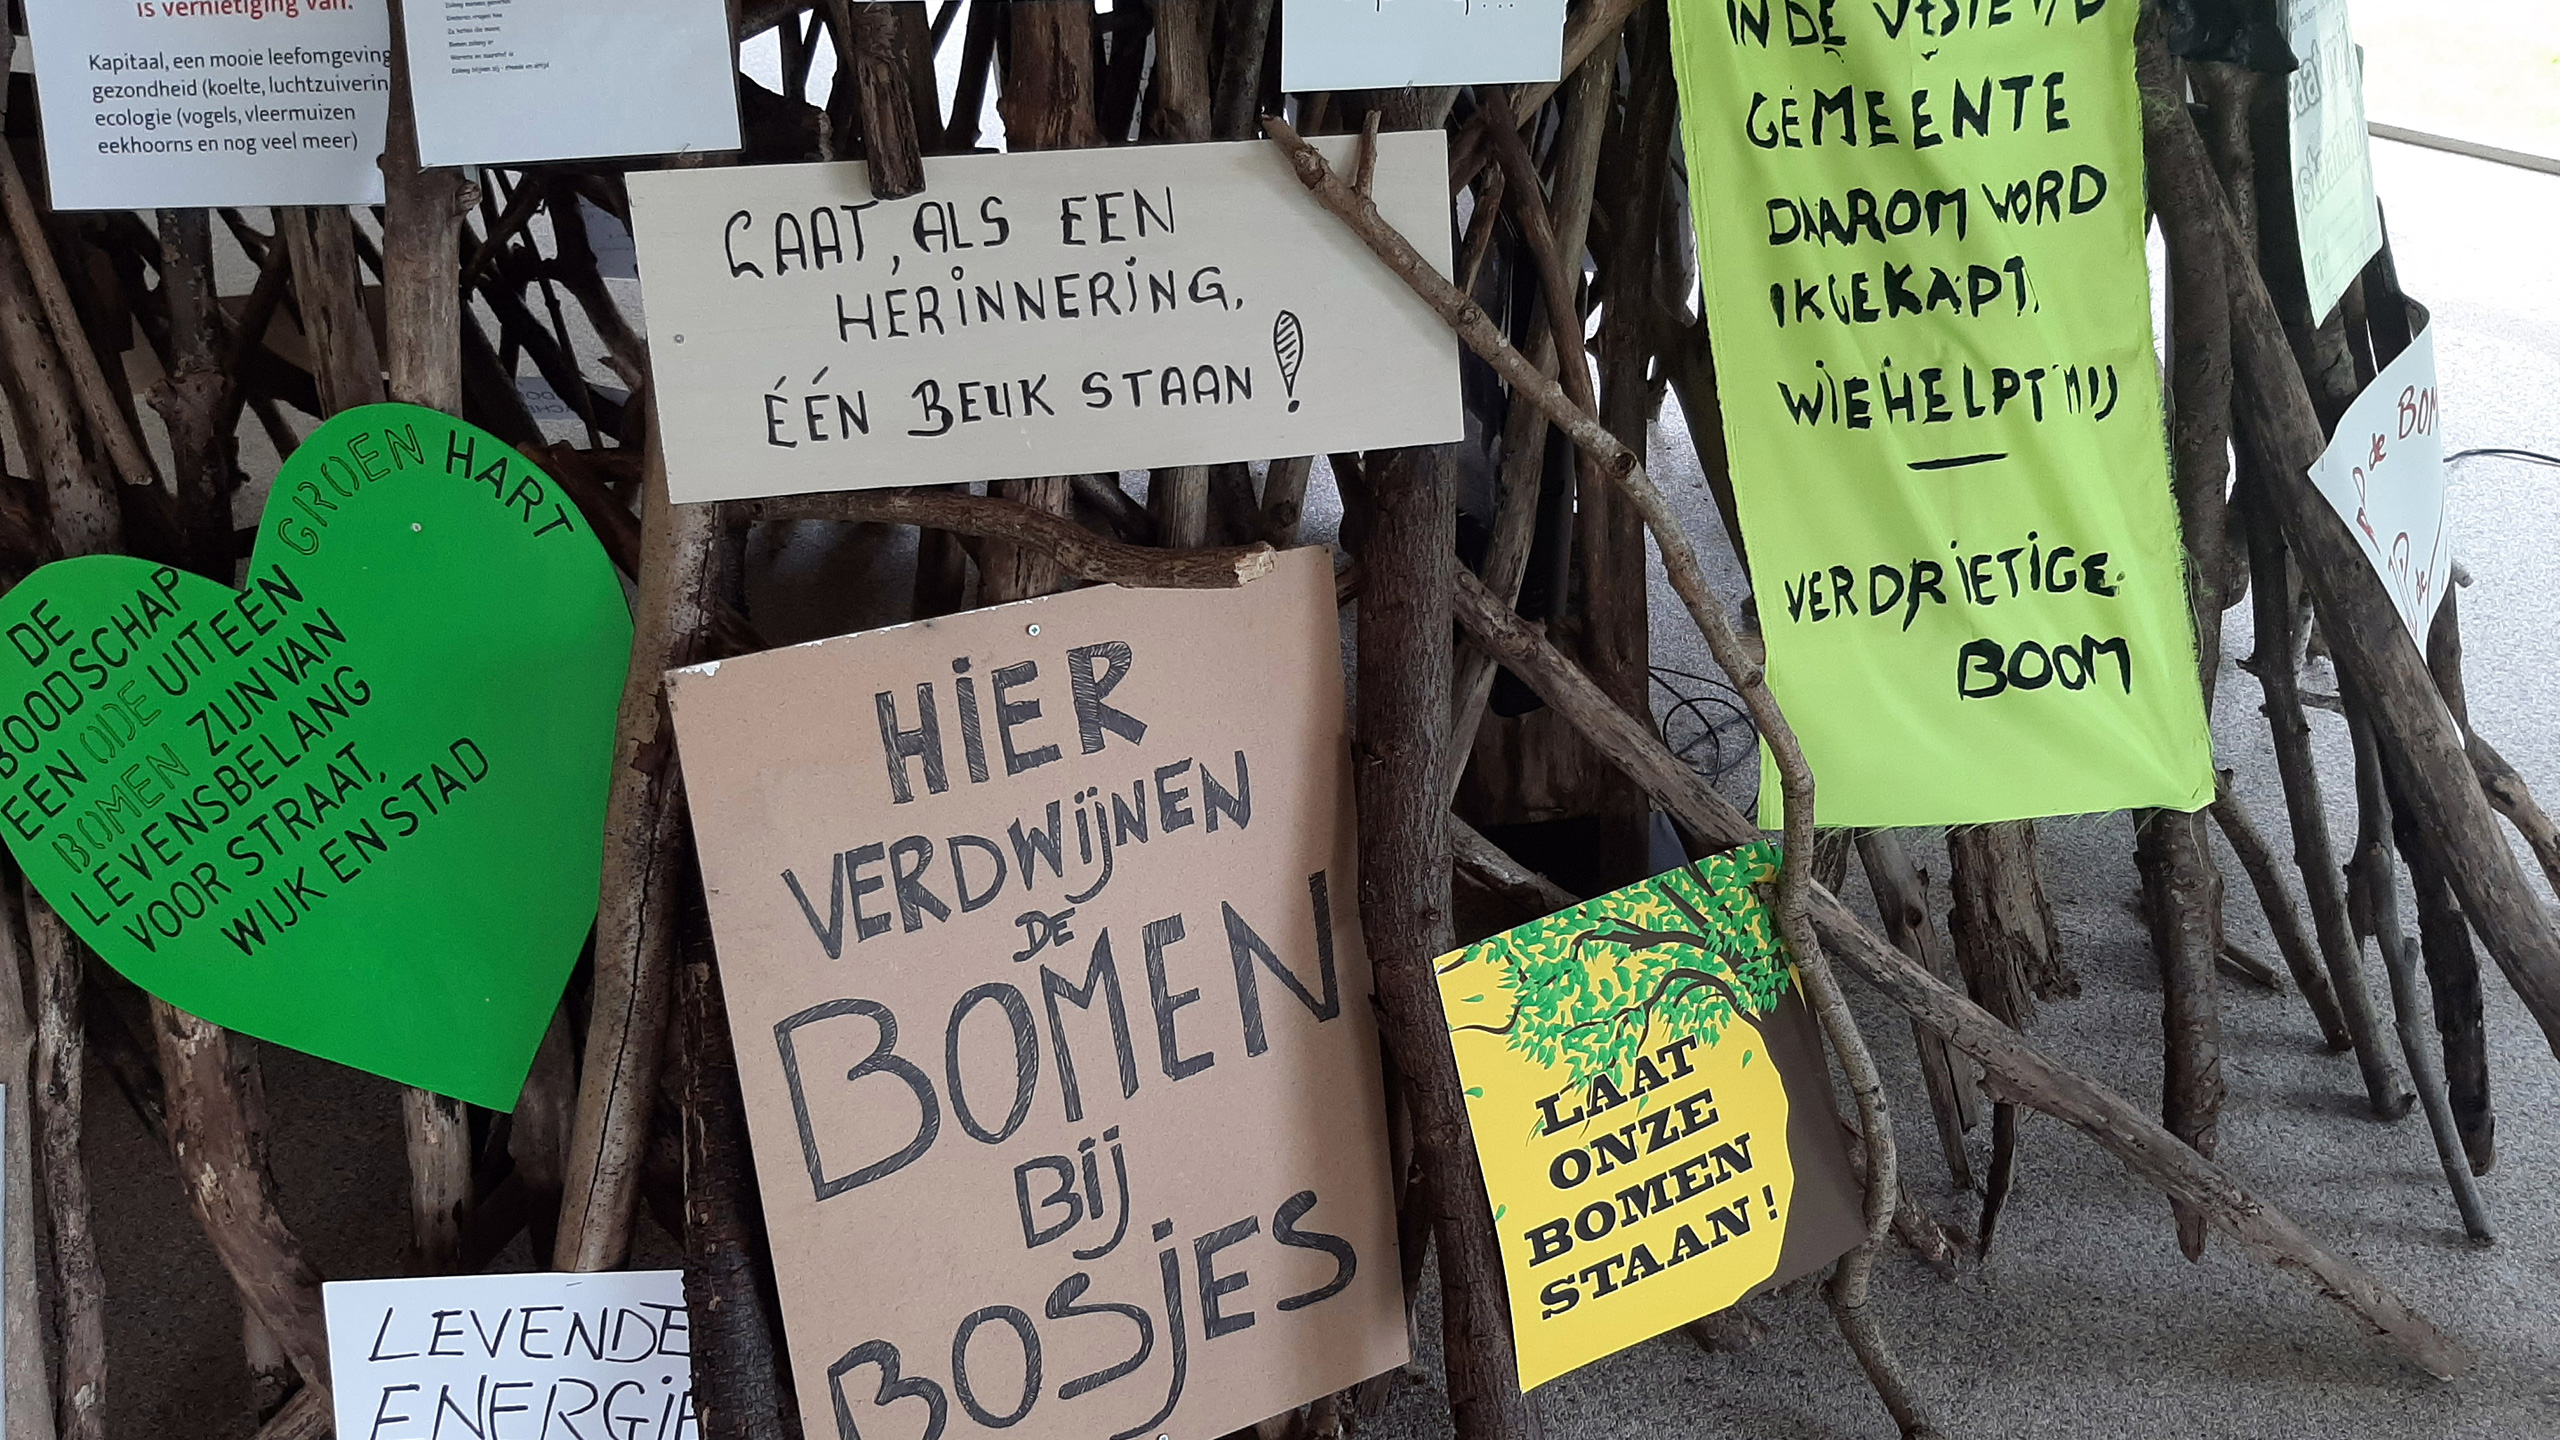 is vernietiging van:
Kapitaal, een mooie leefomgeving
gezondheid (koelte, luchtzuiverin
ecologie (vogels, vleermuizen
eekhoorns en nog veel meer)
LAAT, ALS EEN
HERINNERING,
ÉÉN BEUK STAAN!
IN DE
GEMEENTE
DAAROM WORD
IK GEKAPT.
WIE HELPT MIJ
—
VERDRIETIGE
BOOM
de BOM
de
GROEN HART
DE
BOODSCHAP
EEN ODE UITEEN
BOMEN ZIJN VAN
LEVENSBELANG
VOOR STRAAT,
WIJK EN STAD
HIER
VERDWIJNEN
DE
BOMEN
BIJ
BOSJES
LAAT
ONZE
BOMEN
STAAN!
LEVENDE
ENERGIE